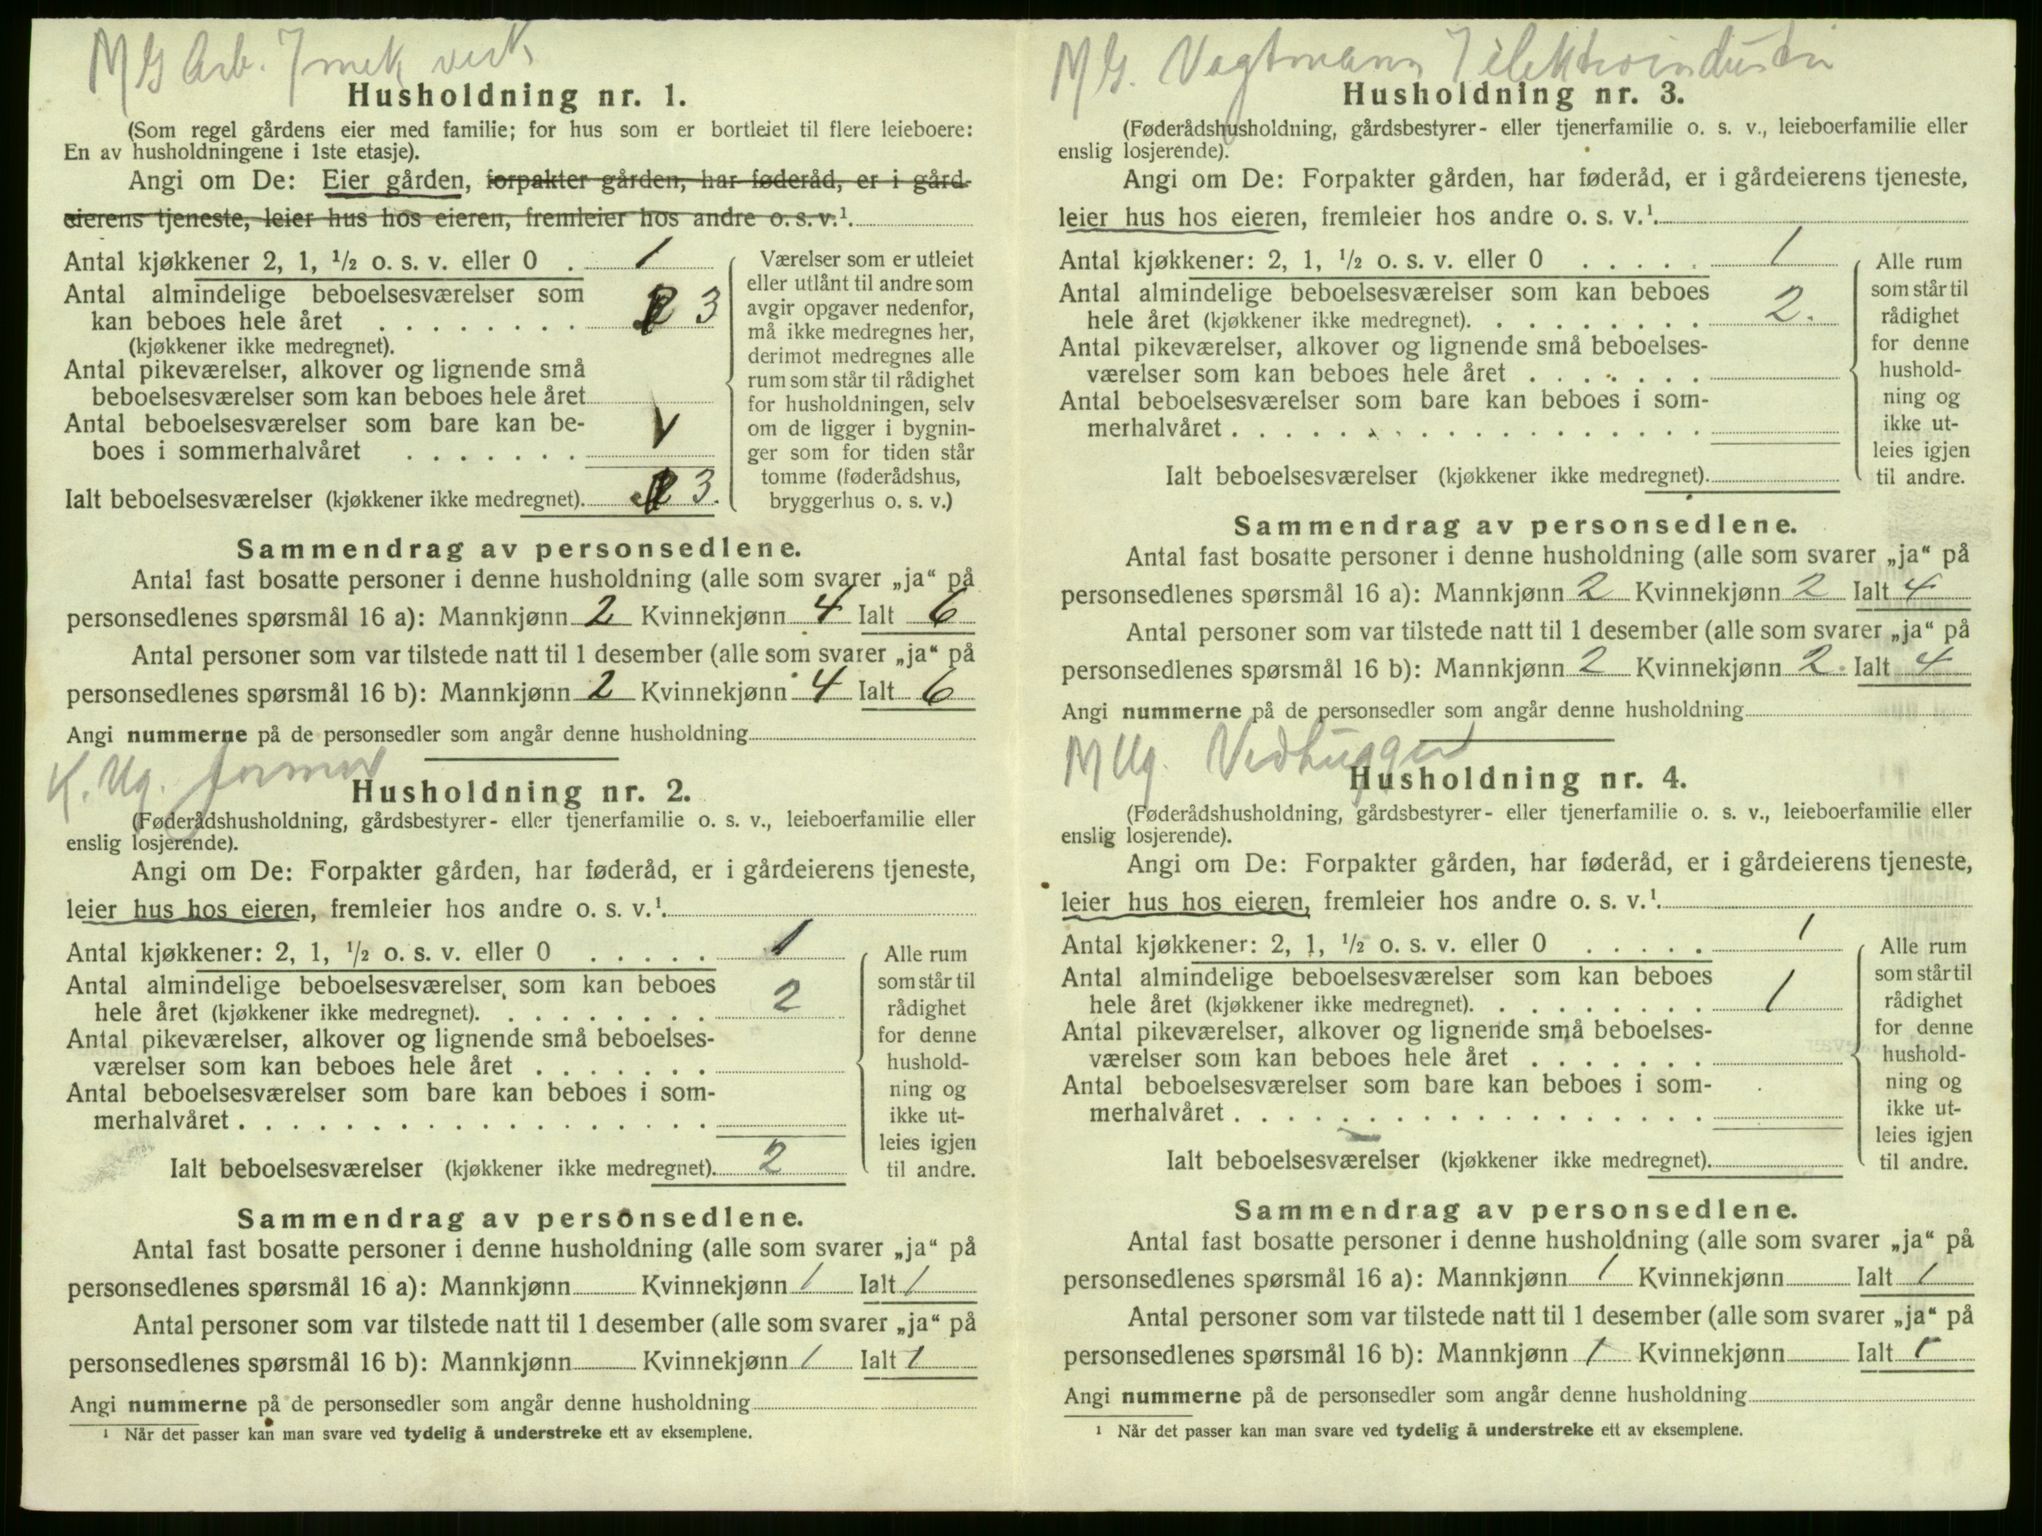 M G Arb. I mek verk
Husholdning nr. 1.
(Som regel gårdens eier med familie; for hus som er bortleiet til flere leieboere:
En av husholdningene i 1ste etasje).
Angi om De: Eier gården, forpakter gården, har føderåd, er i gård-
eierens tjeneste, leier hus hos eieren, fremleier hos andre o. s. v.¹.
Antal kjøkkener 2, 1, ½ o. s. v. eller 0 . 1
Antal almindelige beboelsesværelser som
kan beboes hele året . . . . . . . . 3
(kjøkkener ikke medregnet).
Antal pikeværelser, alkover og lignende små
beboelsesværelser som kan beboes hele året
Antal beboelsesværelser som bare kan be-
boes i sommerhalvåret . . . . . . .
Ialt beboelsesværelser (kjøkkener ikke medregnet). 3.
Værelser som er utleiet
eller utlånt til andre som
avgir opgaver nedenfor,
må ikke medregnes her,
derimot medregnes alle
rum som står til rådighet
for husholdningen, selv
om de ligger i bygnin-
ger som for tiden står
tomme (føderådshus,
bryggerhus o. s. v.)
Sammendrag av personsedlene.
Antal fast bosatte personer i denne husholdning (alle som svarer „ja“ på
personsedlenes spørsmål 16 a): Mannkjønn 2 Kvinnekjønn 4 Ialt 6
Antal personer som var tilstede natt til 1 desember (alle som svarer „ja“ på
personsedlenes spørsmål 16 b): Mannkjønn 2 Kvinnekjønn 4 Ialt 6
Angi nummerne på de personsedler som angår denne husholdning
K. Ug.
Husholdning nr. 2.
(Føderådshusholdning, gårdsbestyrer- eller tjenerfamilie o. s. v., leieboerfamilie eller
enslig losjerende).
Angi om De: Forpakter gården, har føderåd, er i gårdeierens tjeneste,
leier hus hos eieren, fremleier hos andre o. s. v.¹.
Antal kjøkkener: 2, 1, ½ o. s. v. eller 0 . . . . . 1
Antal almindelige beboelsesværelser, som kan beboes
hele året (kjøkkener ikke medregnet). . . . . . . . . 2
Antal pikeværelser, alkover og lignende små beboelses-
værelser som kan beboes hele året . . . . . . .
Antal beboelsesværelser som bare kan beboes i som-
merhalvåret . . . . . . . . . . . . . . . . . .
Ialt beboelsesværelser (kjøkkener ikke medregnet). 2
Alle rum
som står til
rådighet
for denne
hushold-
ning og
ikke ut-
leies igjen
til andre.
Sammendrag av personsedlene.
Antal fast bosatte personer i denne husholdning (alle som svarer „ja“ på
personsedlenes spørsmål 16 a): Mannkjønn Kvinnekjønn 1 Ialt 1
Antal personer som var tilstede natt til 1 desember (alle som svarer „ja“ på
personsedlenes spørsmål 16 b): Mannkjønn Kvinnekjønn 1 Ialt 1
Angi nummerne på de personsedler som angår denne husholdning
¹ Når det passer kan man svare ved tydelig å understreke ett av eksemplene.
M G. Vagtmann I elektroindustri
Husholdning nr. 3.
(Føderådshusholdning, gårdsbestyrer- eller tjenerfamilie o. s. v., leieboerfamilie eller
enslig losjerende).
Angi om De: Forpakter gården, har føderåd, er i gårdeierens tjeneste,
leier hus hos eieren, fremleier hos andre o. s. v.¹.
Antal kjøkkener: 2, 1, ½ o. s. v. eller 0 . . . . . 1
Antal almindelige beboelsesværelser som kan beboes
hele året (kjøkkener ikke medregnet). . . . . . . . . 2.
Antal pikeværelser, alkover og lignende små beboelses-
værelser som kan beboes hele året . . . . . . .
Antal beboelsesværelser som bare kan beboes i som-
merhalvåret . . . . . . . . . . . . . . . . . .
Ialt beboelsesværelser (kjøkkener ikke medregnet).
Alle rum
som står til
rådighet
for denne
hushold-
ning og
ikke ut-
leies igjen
til andre.
Sammendrag av personsedlene.
Antal fast bosatte personer i denne husholdning (alle som svarer „ja“ på
personsedlenes spørsmål 16 a): Mannkjønn 2 Kvinnekjønn 2 Ialt 4
Antal personer som var tilstede natt til 1 desember (alle som svarer „ja“ på
personsedlenes spørsmål 16 b): Mannkjønn 2 Kvinnekjønn 2. Ialt 4
Angi nummerne på de personsedler som angår denne husholdning
M Ug. Vedhugger
Husholdning nr. 4.
(Føderådshusholdning, gårdsbestyrer- eller tjenerfamilie o. s. v., leieboerfamilie eller
enslig losjerende).
Angi om De: Forpakter gården, har føderåd, er i gårdeierens tjeneste,
leier hus hos eieren, fremleier hos andre o. s. v.¹.
Antal kjøkkener: 2, 1, ½ o. s. v. eller 0 . . . . . 1
Antal almindelige beboelsesværelser som kan beboes
hele året (kjøkkener ikke medregnet). . . . . . . . . 1
Antal pikeværelser, alkover og lignende små beboelses-
værelser som kan beboes hele året . . . . . . .
Antal beboelsesværelser som bare kan beboes i som-
merhalvåret . . . . . . . . . . . . . . . . . .
Ialt beboelsesværelser (kjøkkener ikke medregnet).
Alle rum
som står til
rådighet
for denne
hushold-
ning og
ikke ut-
leies igjen
til andre.
Sammendrag av personsedlene.
Antal fast bosatte personer i denne husholdning (alle som svarer „ja“ på
personsedlenes spørsmål 16 a): Mannkjønn 1 Kvinnekjønn Ialt 1
Antal personer som var tilstede natt til 1 desember (alle som svarer „ja“ på
personsedlenes spørsmål 16 b): Mannkjønn 1 Kvinnekjønn Ialt 1
Angi nummerne på de personsedler som angår denne husholdning
¹ Når det passer kan man svare ved tydelig å understreke ett av eksemplene.